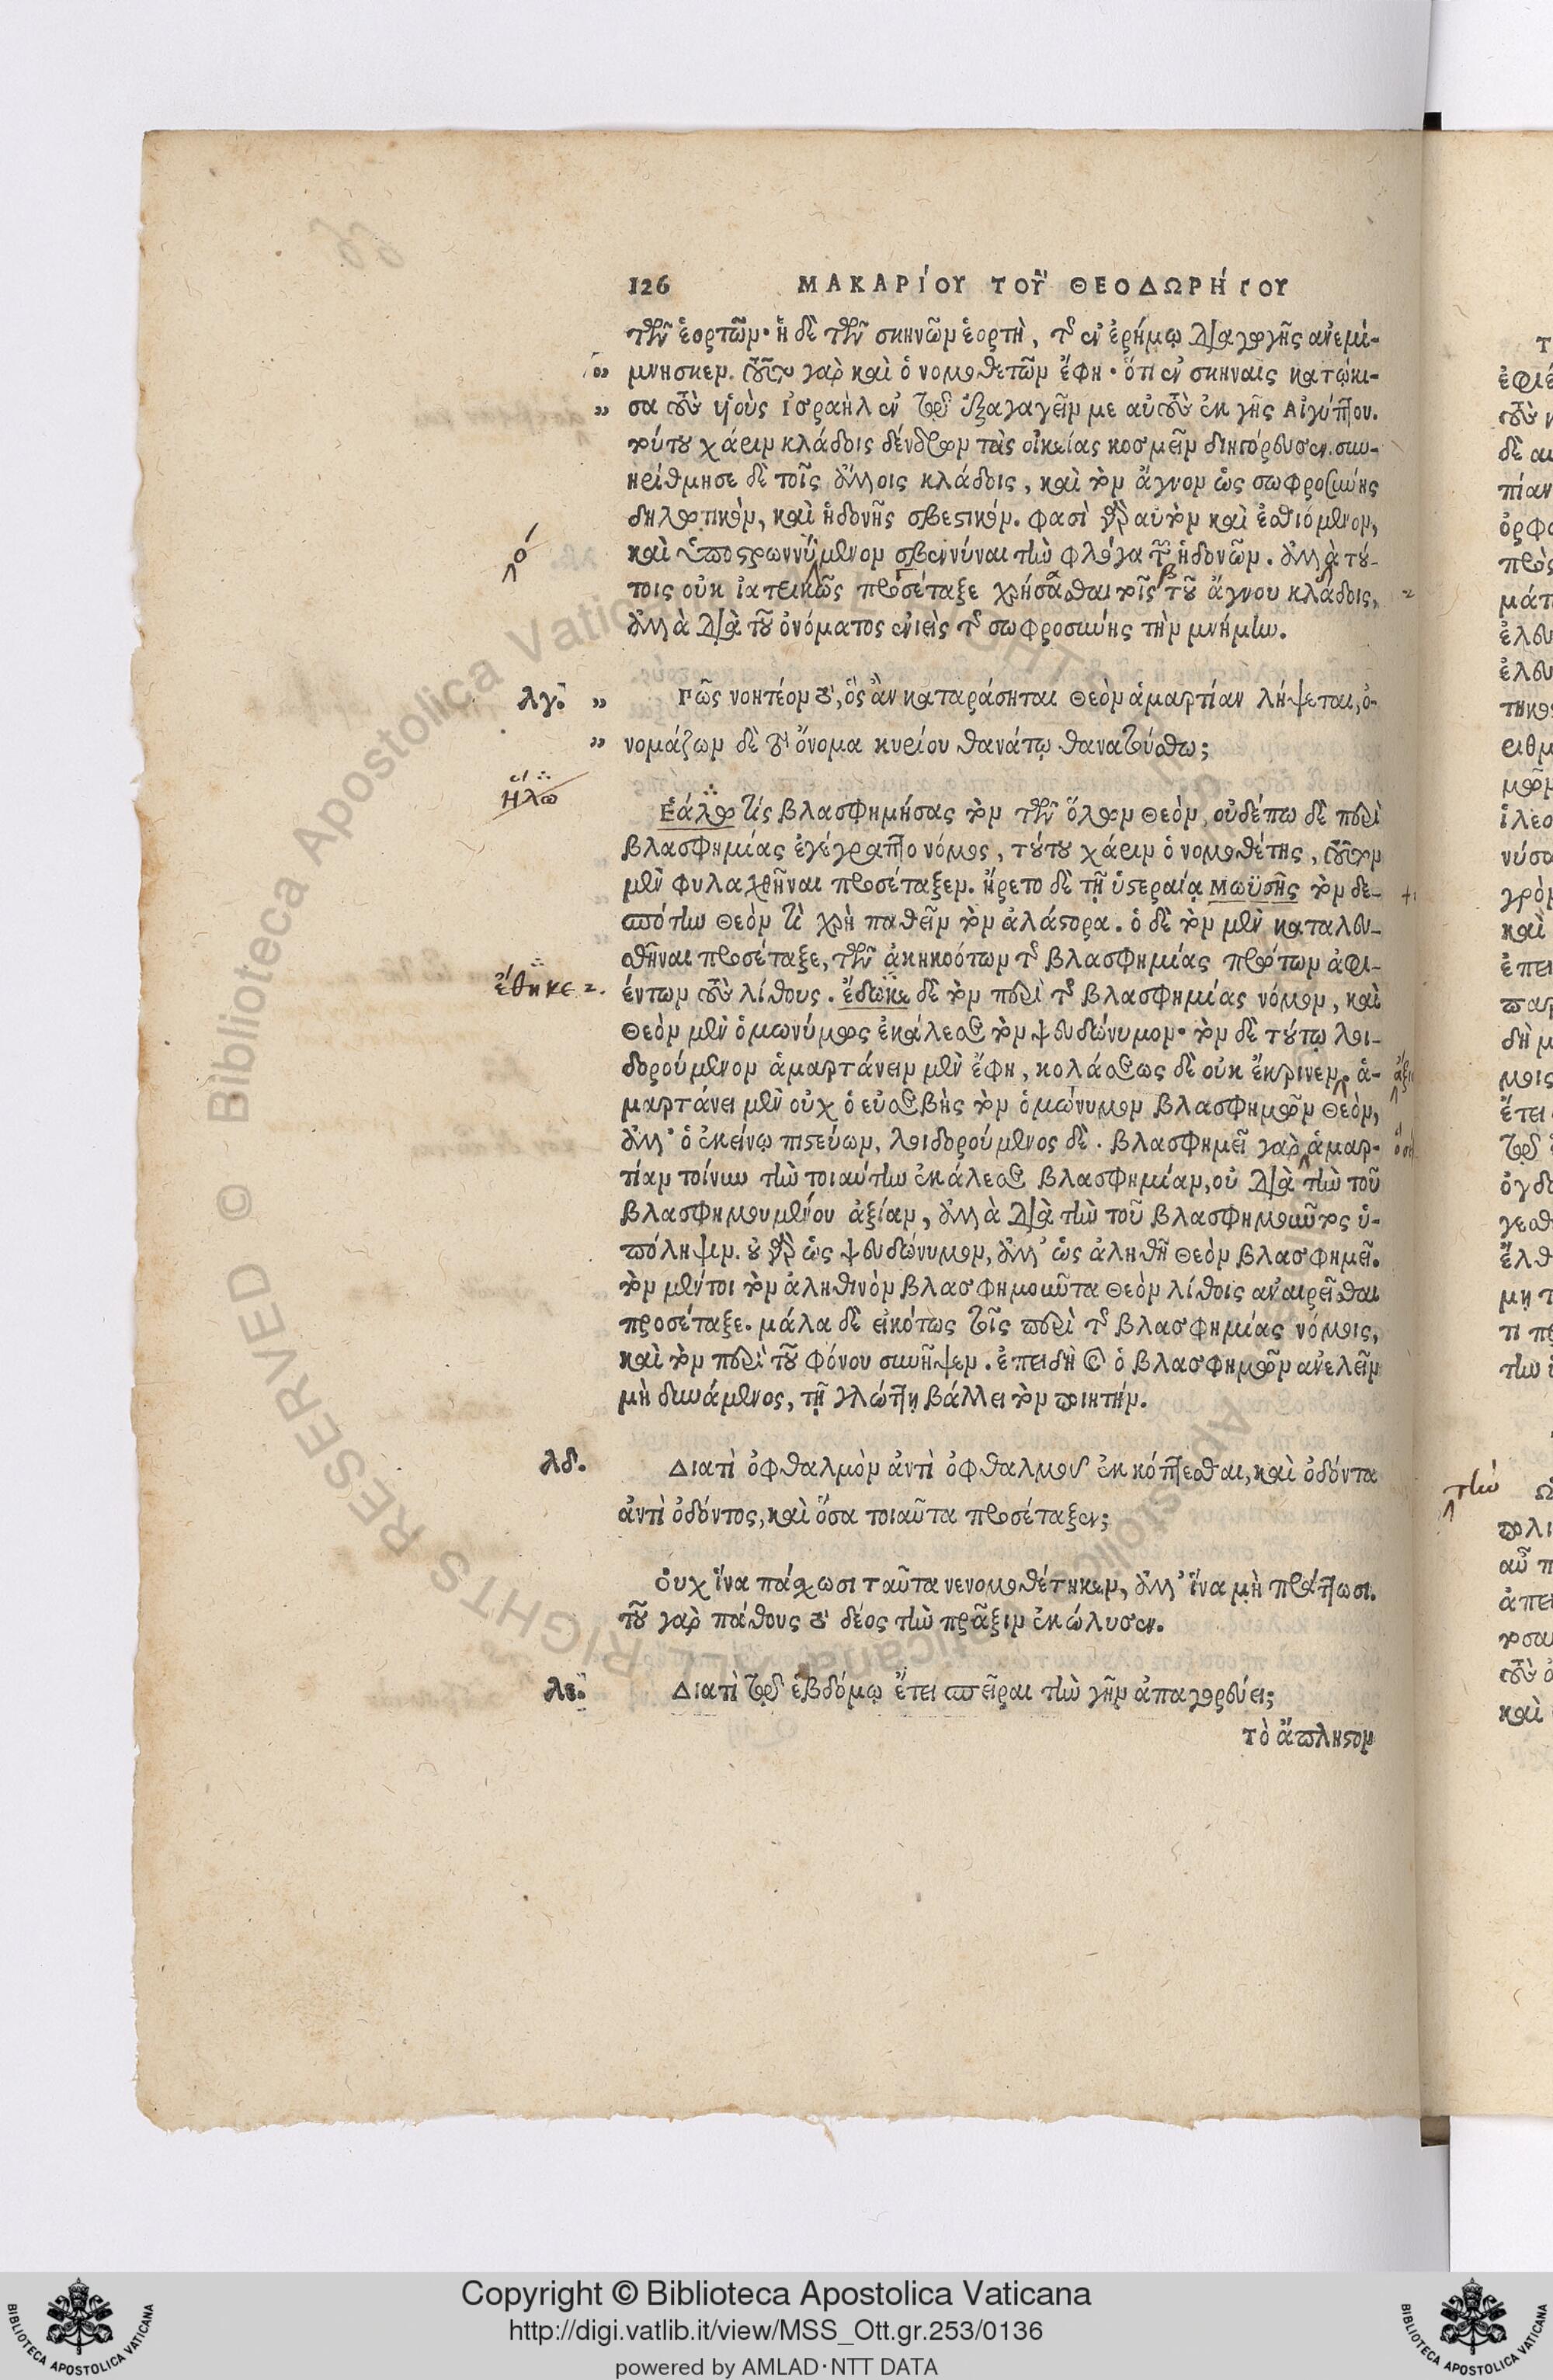 126 ΜΑΚΑΡΊΟΥ ΤΟΥ͂ ΘΕΟΔΩΡΉΤΟΥ
τῶν ἑορτῶν· ἡ δὲ τῶν σκηνῶν ἑορτὴ, τῆς ἐν ἐρήμῳ διαγωγῆς ἀνεμί-
„ μνησκεν. οὕτω γὰρ καὶ ὁ νομοθετῶν ἔφη· ὅτι ἐν σκηναῖς κατῴκι-
„ σα τοὺς υἱοὺς ἰσραὴλ ἐν τῷ ἐξαγαγεῖν με αὐτοὺς ἐκ γῆς Αἰγύπτου.
τούτου χάριν κλάδοις δένδρων τὰς οἰκείας κοσμεῖν διηγόρευσεν. συν-
ηρίθμησε δὲ τοῖς ἄλλοις κλάδοις, καὶ τὸν ἄγνον ὡς σωφροσύνης
δηλωτικὸν, καὶ ἡδονῆς σβεστικόν. φασὶ γὰρ αὐτὸν καὶ ἐσθιόμενον,
καὶ ὑποστρωννύμενον σβεννύναι τὴν φλόγα τῶν ἡδονῶν. ἀλλὰ τού-
τοις οὐκ ἰατρικῶς προσέταξε χρήσασθαι τοῖς τοῦ ἄγνου κλάδοις,
ἀλλὰ διὰ τοῦ ὀνόματος ἐνιεὶς τῆς σωφροσύνης τὴν μνήμην.
λγ. „ Πῶς νοητέον τό, ὃς ἂν καταράσηται Θεὸν ἁμαρτίαν λήψεται, ὀ-
„ νομάζων δὲ τὸ ὄνομα κυρίου θανάτῳ θανατούσθω;
Ἑάλω τίς βλασφημήσας τὸν τῶν ὅλων Θεὸν, οὐδέπω δὲ περὶ
βλασφημίας ἐγέγραπτο νόμος, τούτου χάριν ὁ νομοθέτης, τοῦτον
μὲν φυλαχθῆναι προσέταξεν. ἤρετο δὲ τῇ ὑστεραίᾳ Μωϋσῆς τὸν δε-
σπότην Θεὸν τὶ χρὴ παθεῖν τὸν ἀλάστορα. ὁ δὲ τὸν μὲν καταλευ-
σθῆναι προσέταξε, τῶν ἀκηκοότων τῆς βλασφημίας πρώτων ἀφι-
ἔθηκε έντων τοὺς λίθους. ἔδωκε δὲ τὸν περὶ τῆς βλασφημίας νόμον, καὶ
Θεὸν μὲν ὁμωνύμως ἐκάλεσε τὸν ψευδώνυμον· τὸν δὲ τούτῳ λοι-
δορούμενον ἁμαρτάνειν μὲν ἔφη, κολάσεως δὲ οὐκ ἔκρινεν. ἁ-
μαρτάνει μὲν οὐχ ὁ εὐσεβὴς τὸν ὁμώνυμον βλασφημῶν Θεὸν,
ἀλλ’ ὁ ἐκείνῳ πιστεύων, λοιδορούμενος δὲ. βλασφημεῖ γὰρ ἁμαρ-
τίαν τοίνυν τὴν τοιαύτην ἐκάλεσε βλασφημίαν, οὐ διὰ τὴν τοῦ
βλασφημουμένου ἀξίαν, ἀλλὰ διὰ τὴν τοῦ βλασφημοῦντος ὑ-
πόληψιν. οὐ γὰρ ὡς ψευδώνυμον, ἀλλ’ ὡς ἀληθῆ Θεὸν βλασφημεῖ.
τὸν μέντοι τὸν ἀληθινὸν βλασφημοῦντα Θεὸν λίθοις ἀναιρεῖσθαι
προσέταξε. μάλα δὲ εἰκότως τοῖς περὶ τῆς βλασφημίας νόμοις,
καὶ τὸν περὶ τοῦ φόνου συνῆψεν. ἐπειδὴ καὶ ὁ βλασφημῶν ἀνελεῖν
μὴ δυνάμενος, τῇ γλώττῃ βάλλει τὸν ποιητήν.
λδ. Διατὶ ὀφθαλμὸν ἀντὶ ὀφθαλμοῦ ἐκκόπτεσθαι, καὶ ὀδόντα
ἀντὶ ὀδόντος, καὶ ὅσα τοιαῦτα προσέταξεν;
Οὐχ ἵνα πάσχωσι ταῦτα νενομοθέτηκεν, ἀλλ’ ἵνα μὴ πράττωσι.
τοῦ γὰρ πάθους τὸ δέος τὴν πρᾶξιν ἐκώλυσεν.
λε. Διατὶ τῷ ἑβδόμῳ ἔτει σπεῖραι τὴν γῆν ἀπαγορεύει;
τὸ ἄπληστον
Copyright © Biblioteca Apostolica Vaticana
http://digi.vatlib.it/view/MSS_Ott.gr.253/0136
powered by AMLAD·NTT DATA